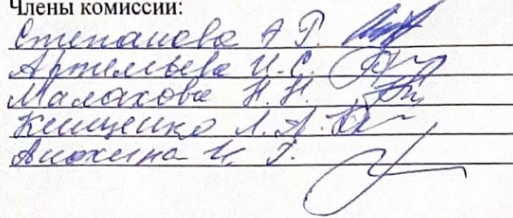 Члены комиссии:
Степанова А Г.
Артемьева И.С.
Малахова Н.Н.
Клищенко Л.А.
Анохина И. Г.